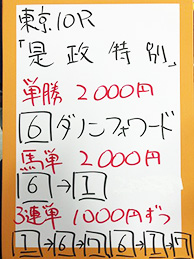 東京10R
「是政特別」
単勝 2000円
6 ダノンフォワード
馬単 2000円
6→1
3連単 1000円ずつ
1→6→7 6→1→7